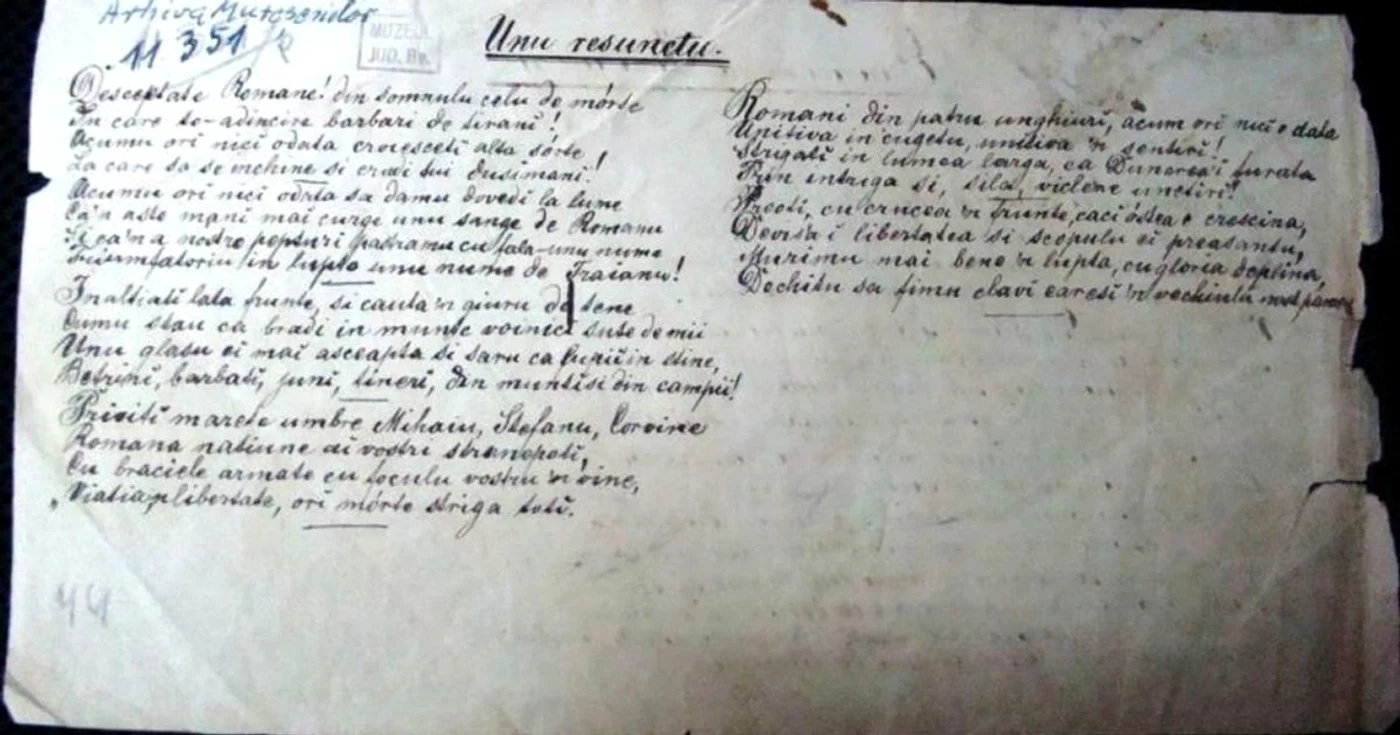 Arhiva Muresenilor
11.351
MUZEUL
JUD. Bv.
Unu resunetu.
Desceptate Romane! din somnulu celu de mórte
In care te-adincire barbari de tirani!
Acumu ori nici odata croiesceti alta sórte
La care sa se inchine si crudi tui dusimani!
Acumu ori nici odata sa damu dovedi la lume
Ca'n aste mani mai curge unu sange de Romanu
Si ca'n a nostre pepturi pastramu cu fala-unu nume
Triumfatoriu in lupte unu nume de Traianu!
Inaltiati lata frunte, si cauta'n giuru de tene
Cumu stau ca bradi in munte voinici sute de mii
Unu glasu ei mai asceapta si saru ca lupii in stine,
Betrini, barbati, juni, tineri, din muntisi din campii!
Priviti marete umbre Mihaiu, Stefanu, Corvine
Romana natiune ai vostri strangpoti,
Cu braciele armate cu foculu vostru 'n vine,
„Viatia'n libertate, ori mórte striga toti.
Romani din patru unghiuri, acum ori nici o data
Unitiva in cugetu, unitiva 'n sentiri!
Strigati in lumea larga, ca Dunarea'i furata
Prin intriga si, sila, viclene unctiri!
Preoti, cu crucea 'n frunte, caci óstea e crescina,
Devisa i libertatea si scopulu ei preasantu,
Murimu mai bene 'n lupta, cu gloria deplina,
Dechitu sa fimu clavi earesi 'n vechiulu nost
44